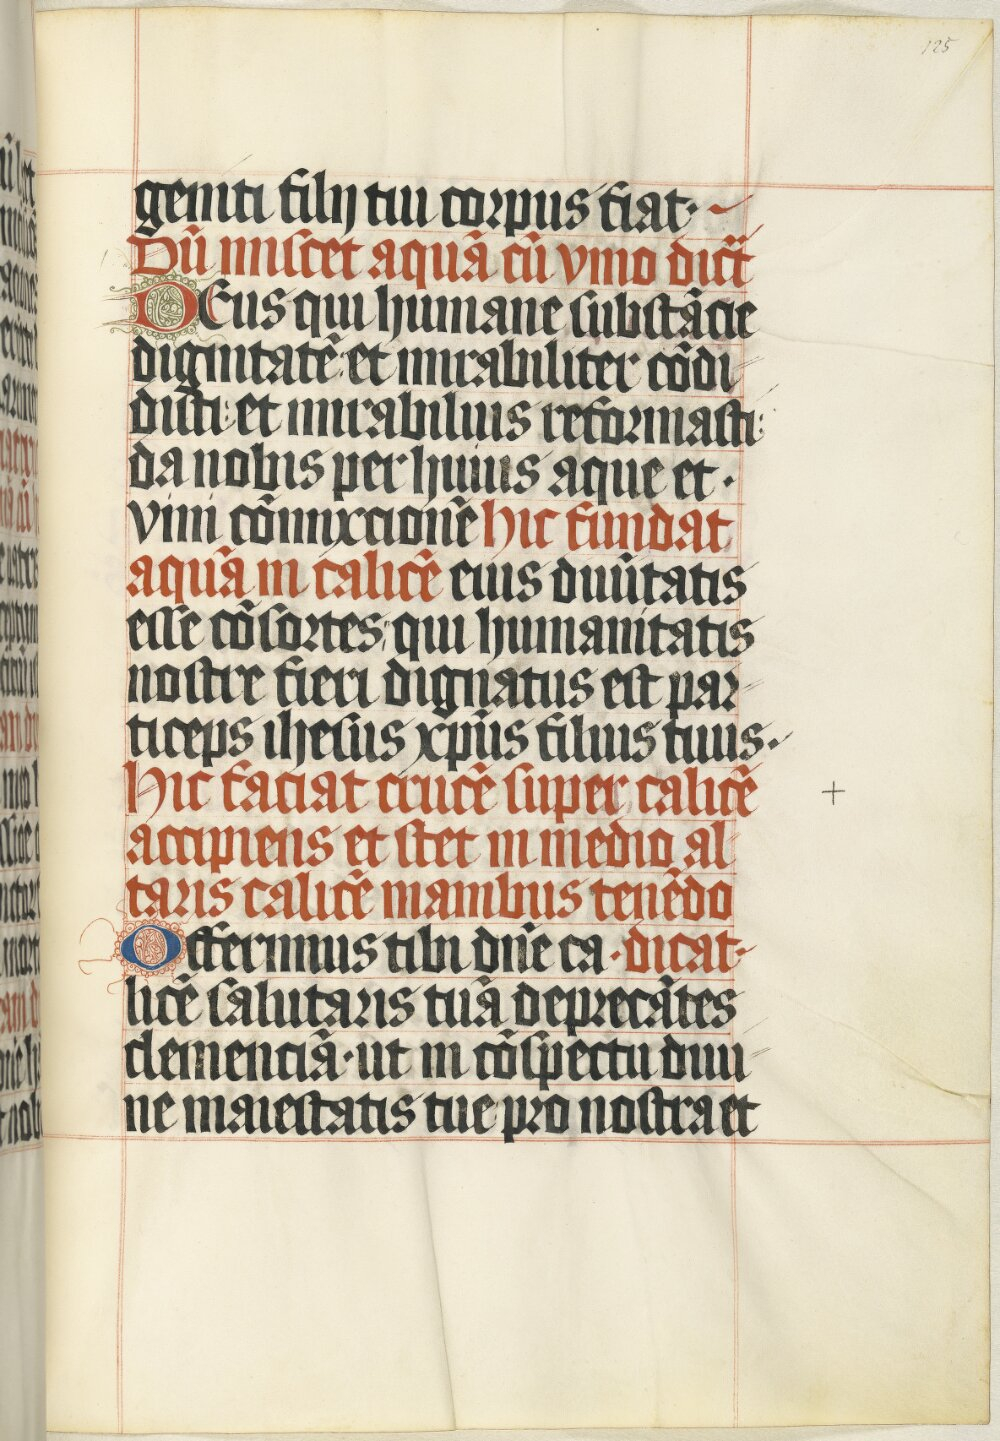 125
geniti filij tui corpus fiat·
Dū miscet aquā cū vino dicit̄
DEus qui humane substācie
dignitatē· et mirabiliter cōdi
disti: et mirabilius reformasti:
da nobis per huius aque et ·
vini cōmixcionē hic fundat
aquā in calicē eius diuītatis
esse cōsortes: qui humanitatis
nostre fieri dignatus est par
ticeps ihesus xp̄us filius tuus·
Hic faciat crucē super calicē
accipiens et stet in medio al
taris calicē manibus tenēdo
Offerimus tibi dn̄e ca ·dicat·
licē salutaris tuā deprecātes
clemenciā· ut in cōspectu diui
ne maiestatis tue pro nostra et